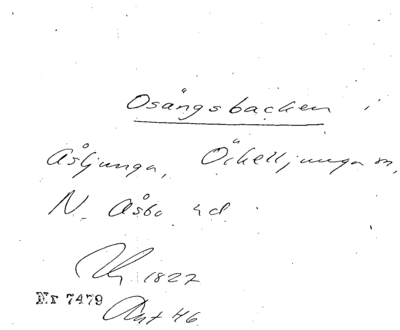 Osångsbacken i
Åsljunga, Örkelljunga sn,
N. Åsbo hd
1827
Nr 7479
Ant 46